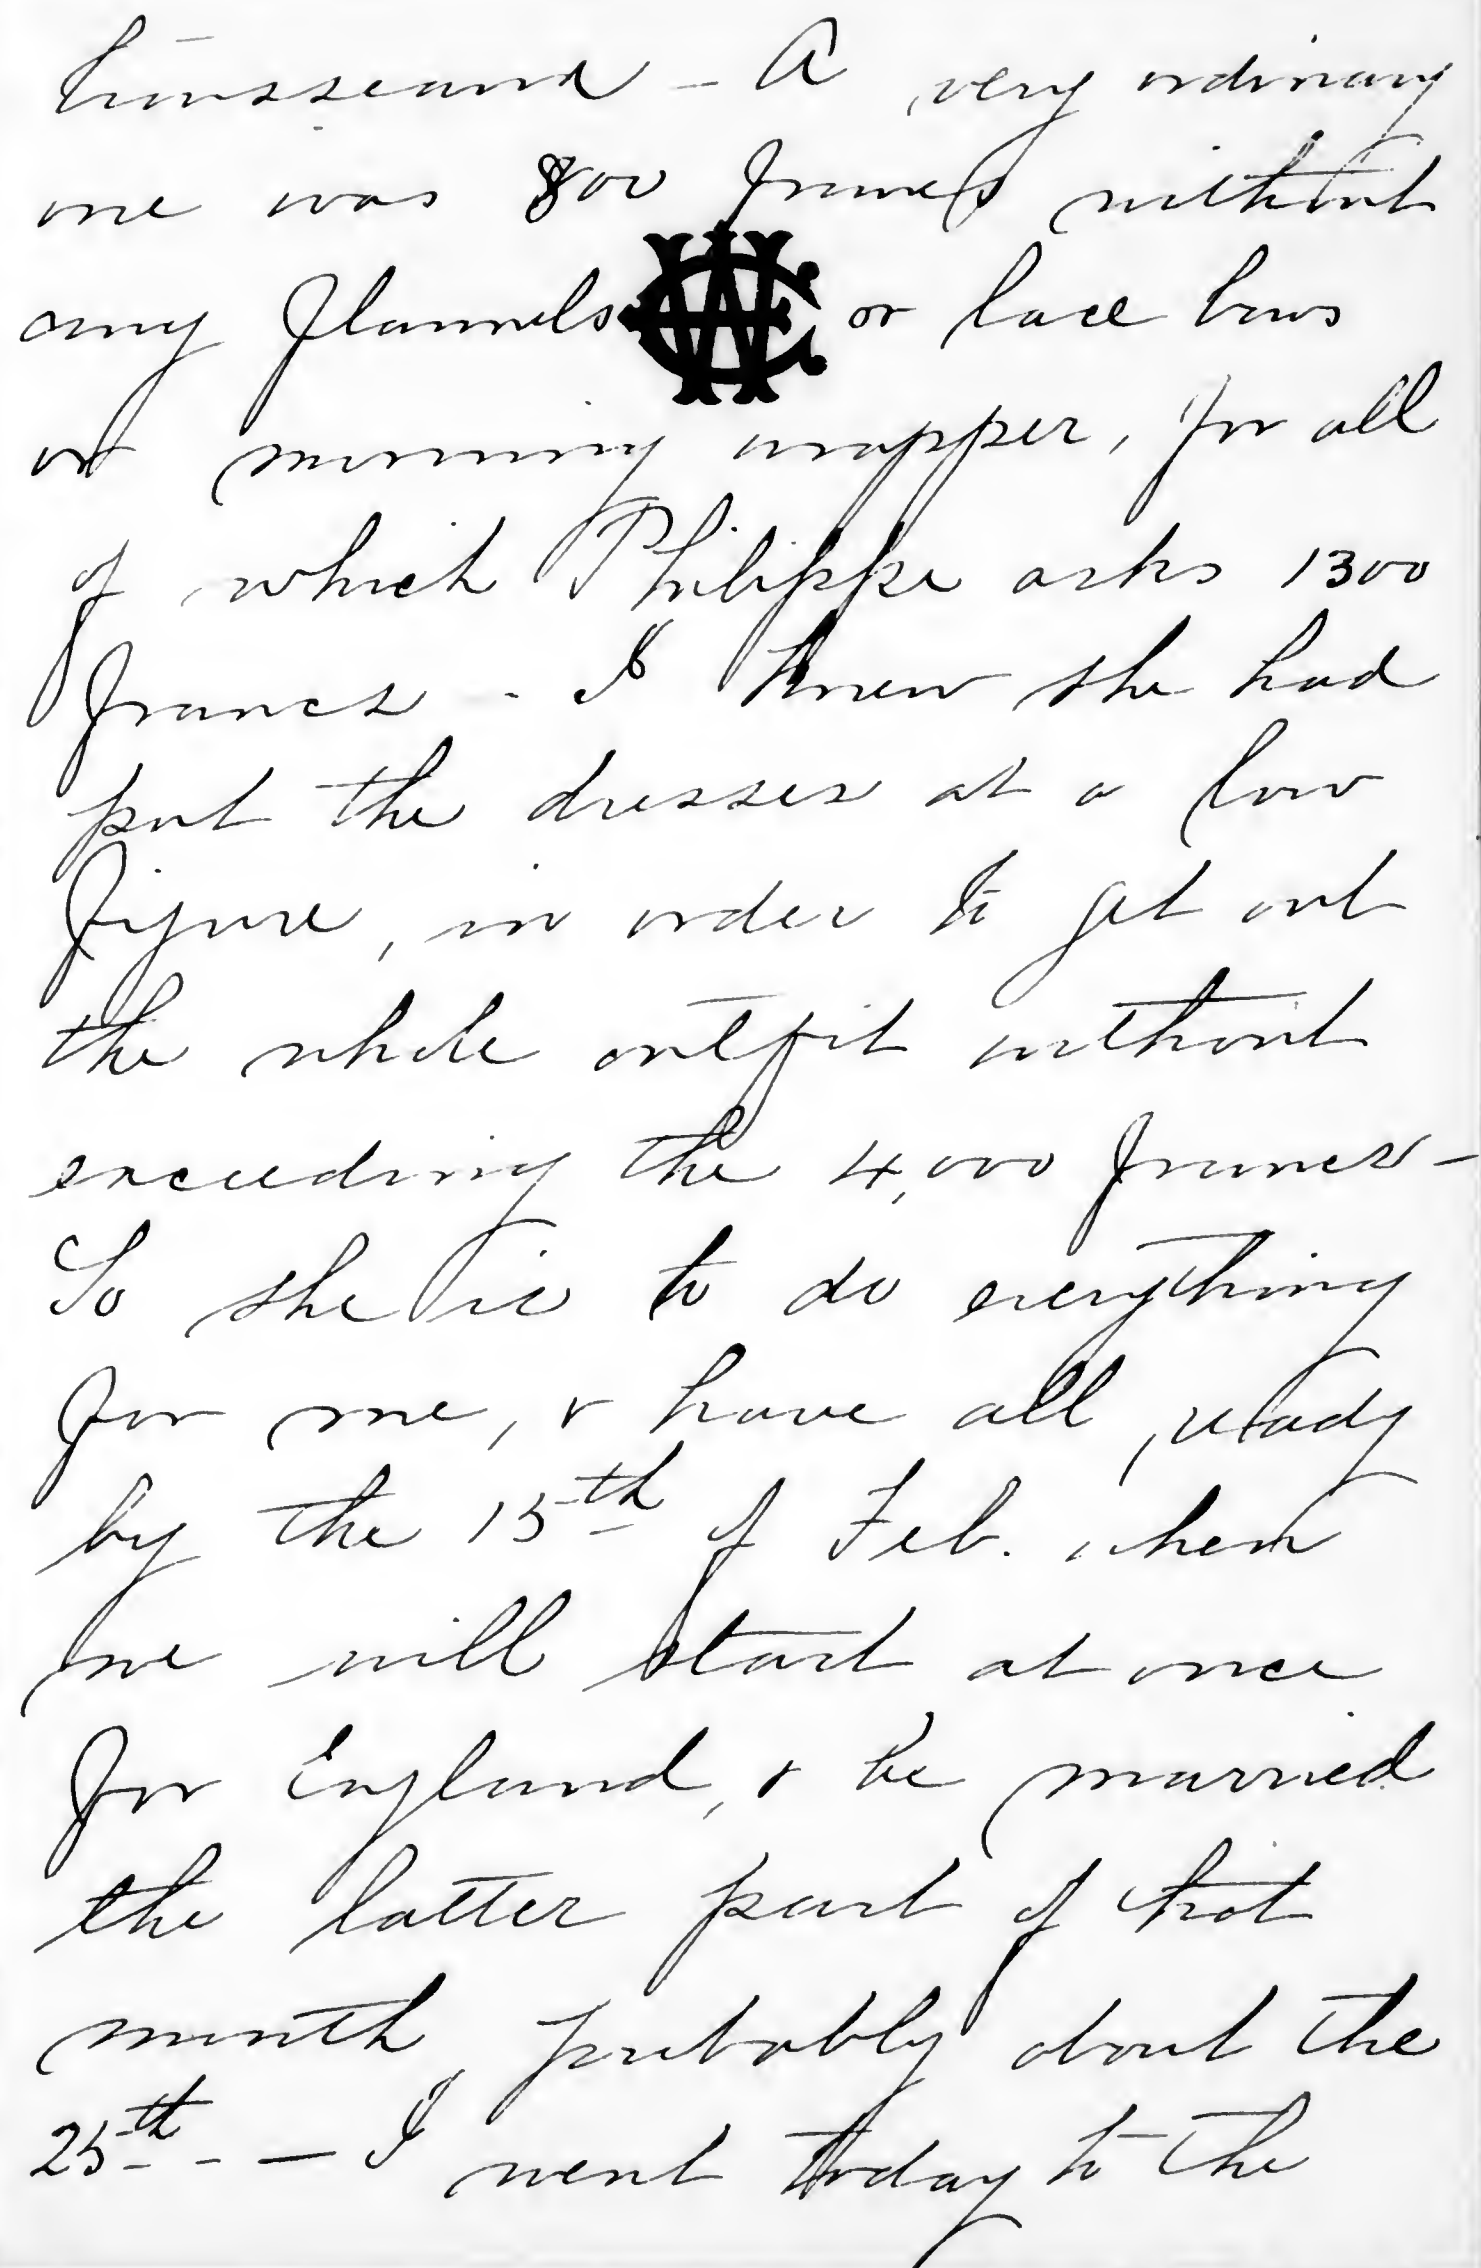 trousseaux - A very ordinary
one was 800 francs without
any flannels or lace bows
or morning wrapper, for all
of which Philippe asks 1300
francs - I knew she had
put the dresses at a low
figure, in order to get out
the whole outfit without
exceeding the 4,000 francs -
So she is to do everything
for me, & have all ready
by the 15th of Feb. when
we will start at once
for England, & be married
the latter part of that
month, probably about the
25th - - I went today to the